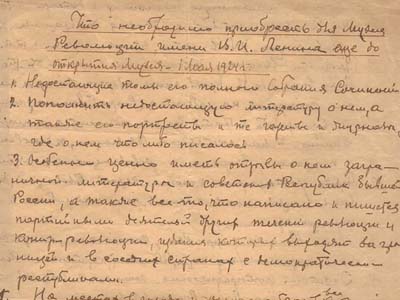 Что необходимо приобрести для Музея
Революции имени В.И. Ленина еще до
открытия Музея - 1 мая 1924 г.
1. Недостающие томы его полного собрания Сочинений
2. Пополнить недостающую литературу о нем, а
также его портреты и те газеты и журналы,
где о нем что либо писалось
3. Особенно ценно иметь отзывы о нем загра-
ничной литературы и советских Республик бывшей
России, а также все то, что написано и пишется
партийными деятелями других течений революции и
контр-революции, издания которых выходят за гра-
ницей и в соседних странах с демократическими
республиками.
На местах